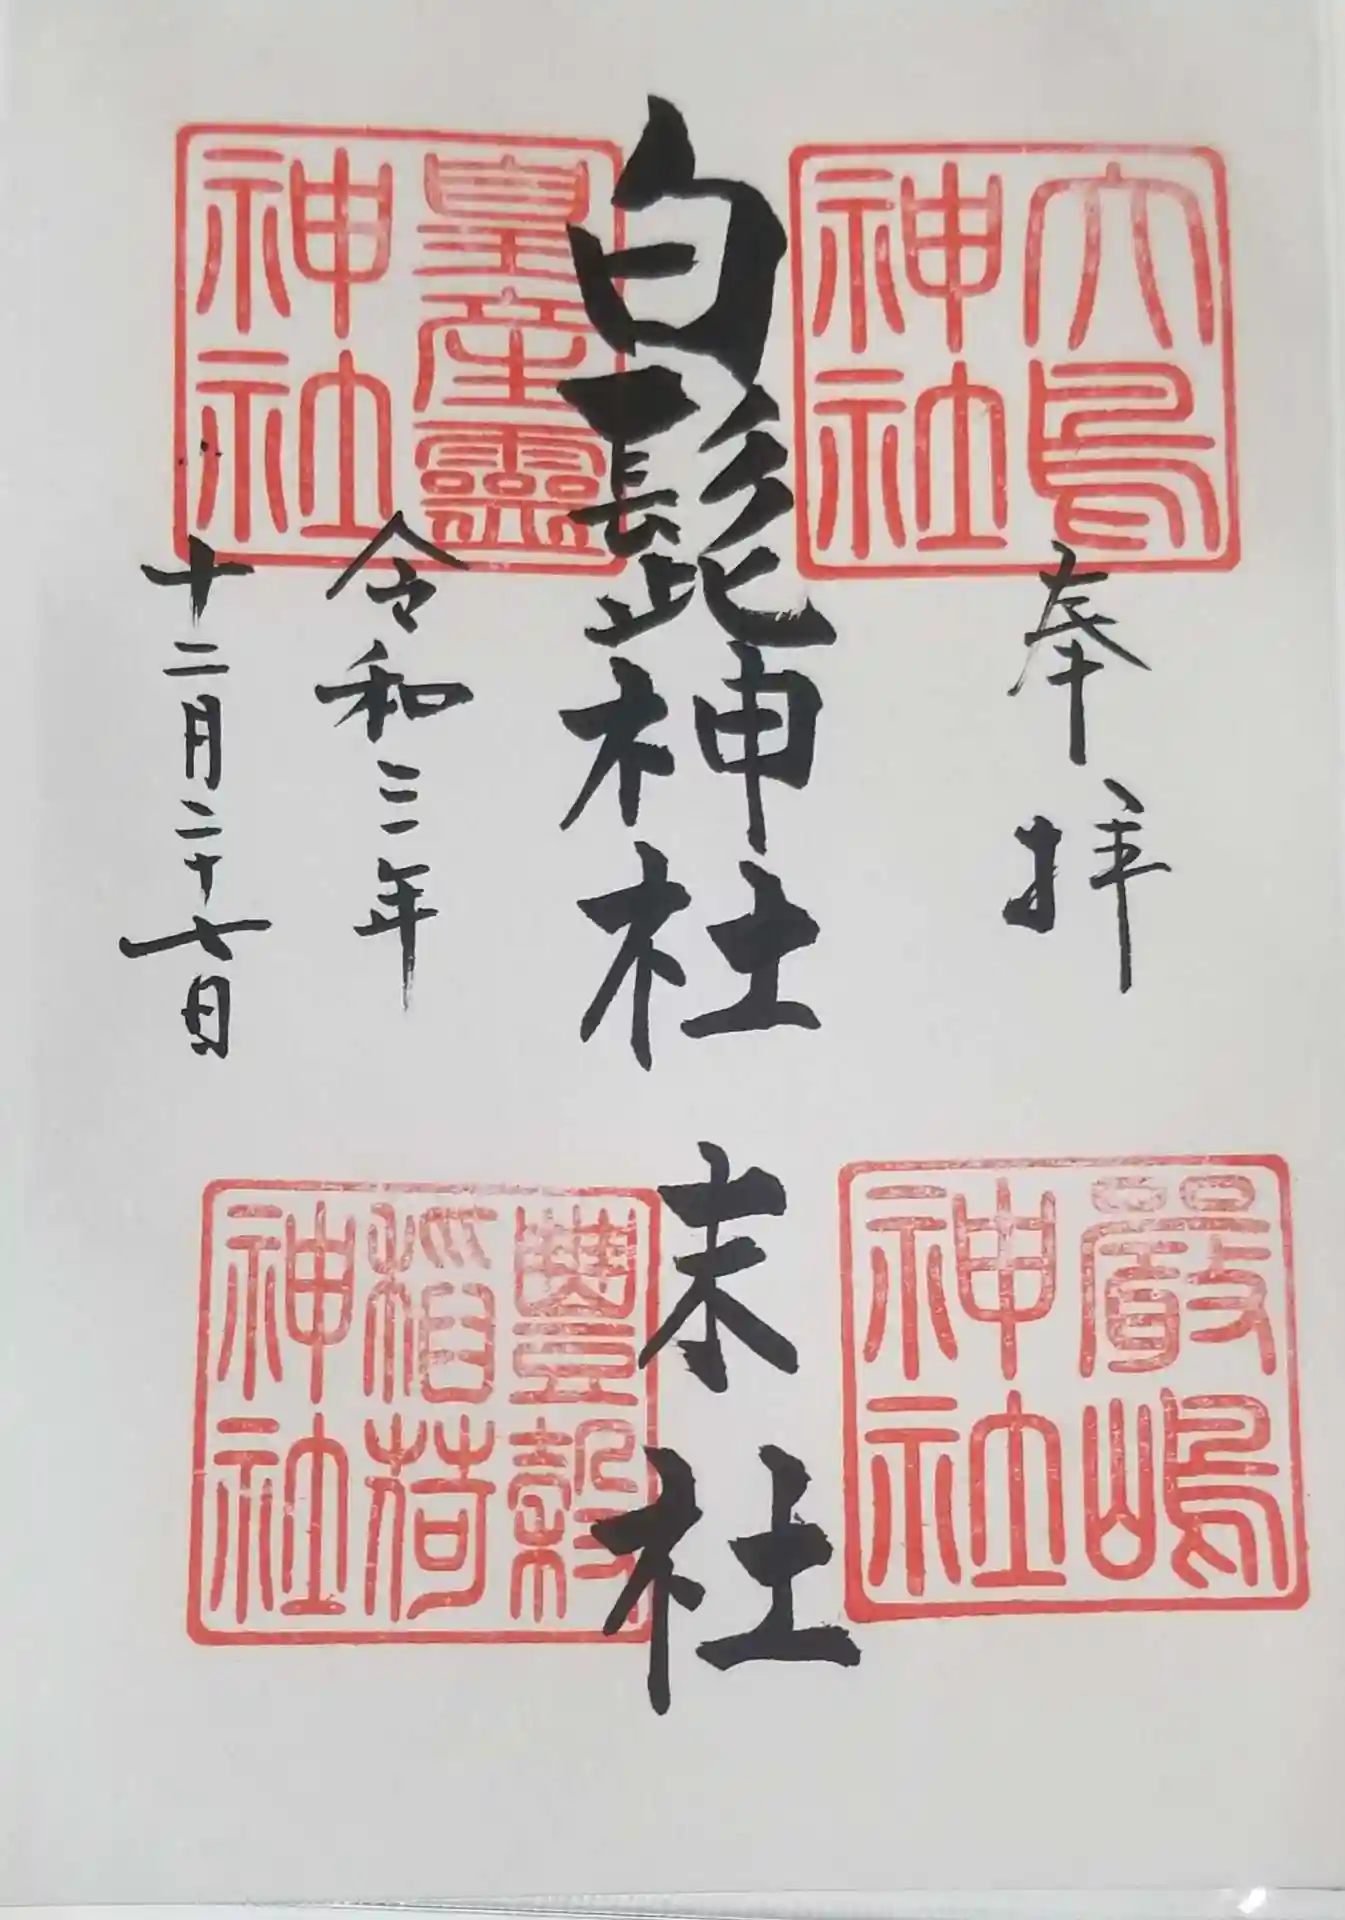 奉拝
大鳥
神社
嚴嶋
神社
白髭神社 末社
皇産靈
神社
豐穀
稻荷
神社
令和三年
十二月二十七日